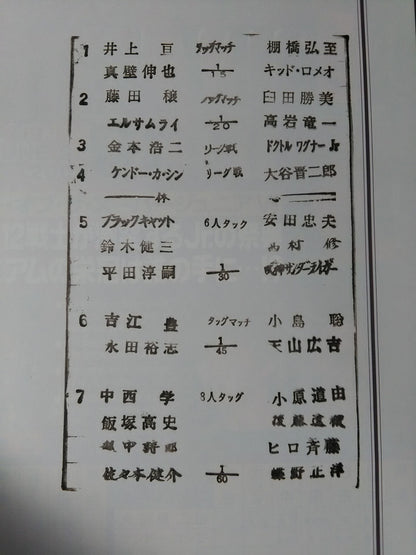 1 井上亘 タッグマッチ 棚橋弘至
真壁伸也 1/15 キッド・ロメオ
2 藤田穣 タッグマッチ 臼田勝美
エルサムライ 1/20 高岩竜一
3 金本浩二 リーグ戦 ドクトルワグナーJr
4 ケンドー・カ・シン リーグ戦 大谷晋二郎
休
5 ブラックキャット 6人タック 安田忠夫
鈴木健三 西村修
平田淳嗣 1/30 獣神サンダーライガー
6 吉江豊 タッグマッチ 小島聡
永田裕志 1/45 天山広吉
7 中西学 8人タッグ 小原道由
飯塚高史 後藤達俊
越中詩郎 ヒロ斉藤
佐々木健介 1/60 蝶野正洋